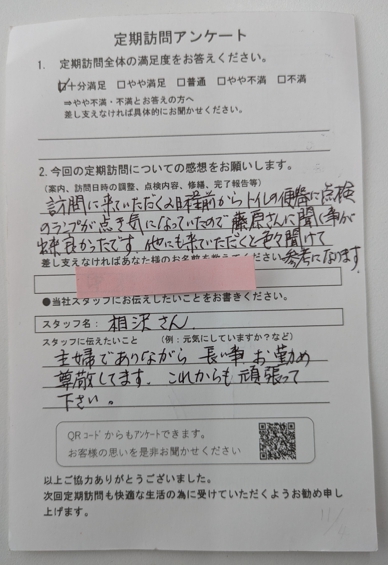 定期訪問アンケート
1. 定期訪問全体の満足度をお答えください。
☑十分満足 □やや満足 □普通 □やや不満 □不満
⇒やや不満・不満とお答えの方へ
差し支えなければ具体的にお聞かせください。
2.今回の定期訪問についての感想をお願いします。
(案内、訪問日時の調整、点検内容、修繕、完了報告等)
訪問に来ていただく日程前からトイレの便器に点検
のランプが点き気になっていたので藤原さんに聞く事が
出来良かったです。他にも来ていただくと色々聞けて
参考になります
差し支えなければあなた様のお名前を教えてください
●当社スタッフにお伝えしたいことをお書きください。
スタッフ名: 相沢さん
スタッフに伝えたいこと (例:元気にしていますか?など)
主婦でありながら 長い事 お勤め
尊敬してます。これからも頑張って
下さい。
QRコードからもアンケートできます。
お客様の思いを是非お聞かせください
以上ご協力ありがとうございました。
次回定期訪問も快適な生活の為に受けていただくようお勧め申し
上げます。